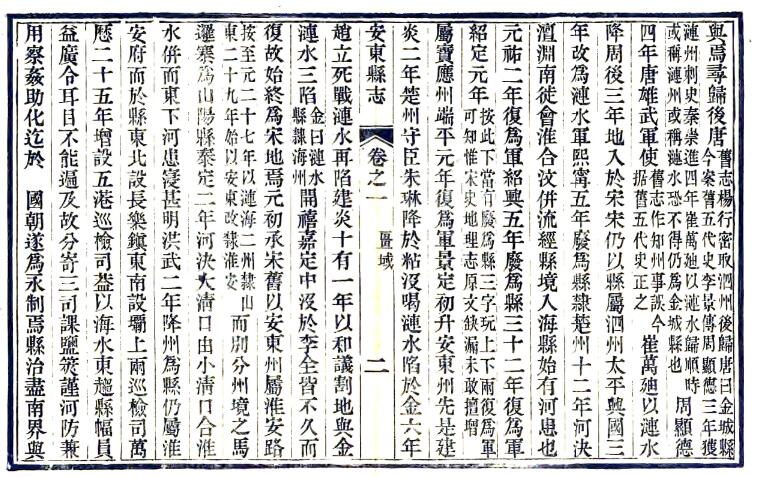 與焉尋歸後唐舊志楊行密取泗州後歸唐曰金城縣今案舊五代史李景傳周顯德三年獲
漣州刺史秦崇進四年崔萬廸以漣水歸順時或稱漣州或稱漣水恐不得仍爲金城縣也周顯德
四年唐雄武軍使舊志作知州事誤今據舊五代史正之崔萬廸以漣水
降周後三年地入於宋宋仍以縣屬泗州太平興國三
年改爲漣水軍熙寧五年廢爲縣隸楚州十二年河決
澶淵南徙會淮合汶併流經縣境入海縣始有河患也
元祐二年復爲軍紹興五年廢爲縣三十二年復爲軍
紹定元年按此下當有廢爲縣三字玩上下兩復爲軍可知惟宋史地理志原文缺漏未敢擅增
屬寶應州端平元年復爲軍景定初升安東州先是建
炎二年楚州守臣朱琳降於粘沒喝漣水陷於金六年
安東縣志 卷之一 疆域 二
趙立死戰漣水再陷建炎十有一年以和議割地與金
漣水三陷金曰漣水縣隸海州開禧嘉定中沒於李全皆不久而
復故始終爲宋地焉元初承宋舊以安東州屬淮安路
按至元二十七年以漣海二州隸山東二十九年始以安東改隸淮安而別分州境之馬
邏寨爲山陽縣泰定二年河決大清口由小清口合淮
水併而東下河患寖甚明洪武二年降州爲縣仍屬淮
安府而於縣東北設長樂鎮東南設壩上兩巡檢司萬
歷二十五年增設五港巡檢司蓋以海水東趨縣幅員
益廣令耳目不能遍及故分寄三司課鹽筴謹河防兼
用察姦助化迄於 國朝遂爲永制焉縣治盡南界與